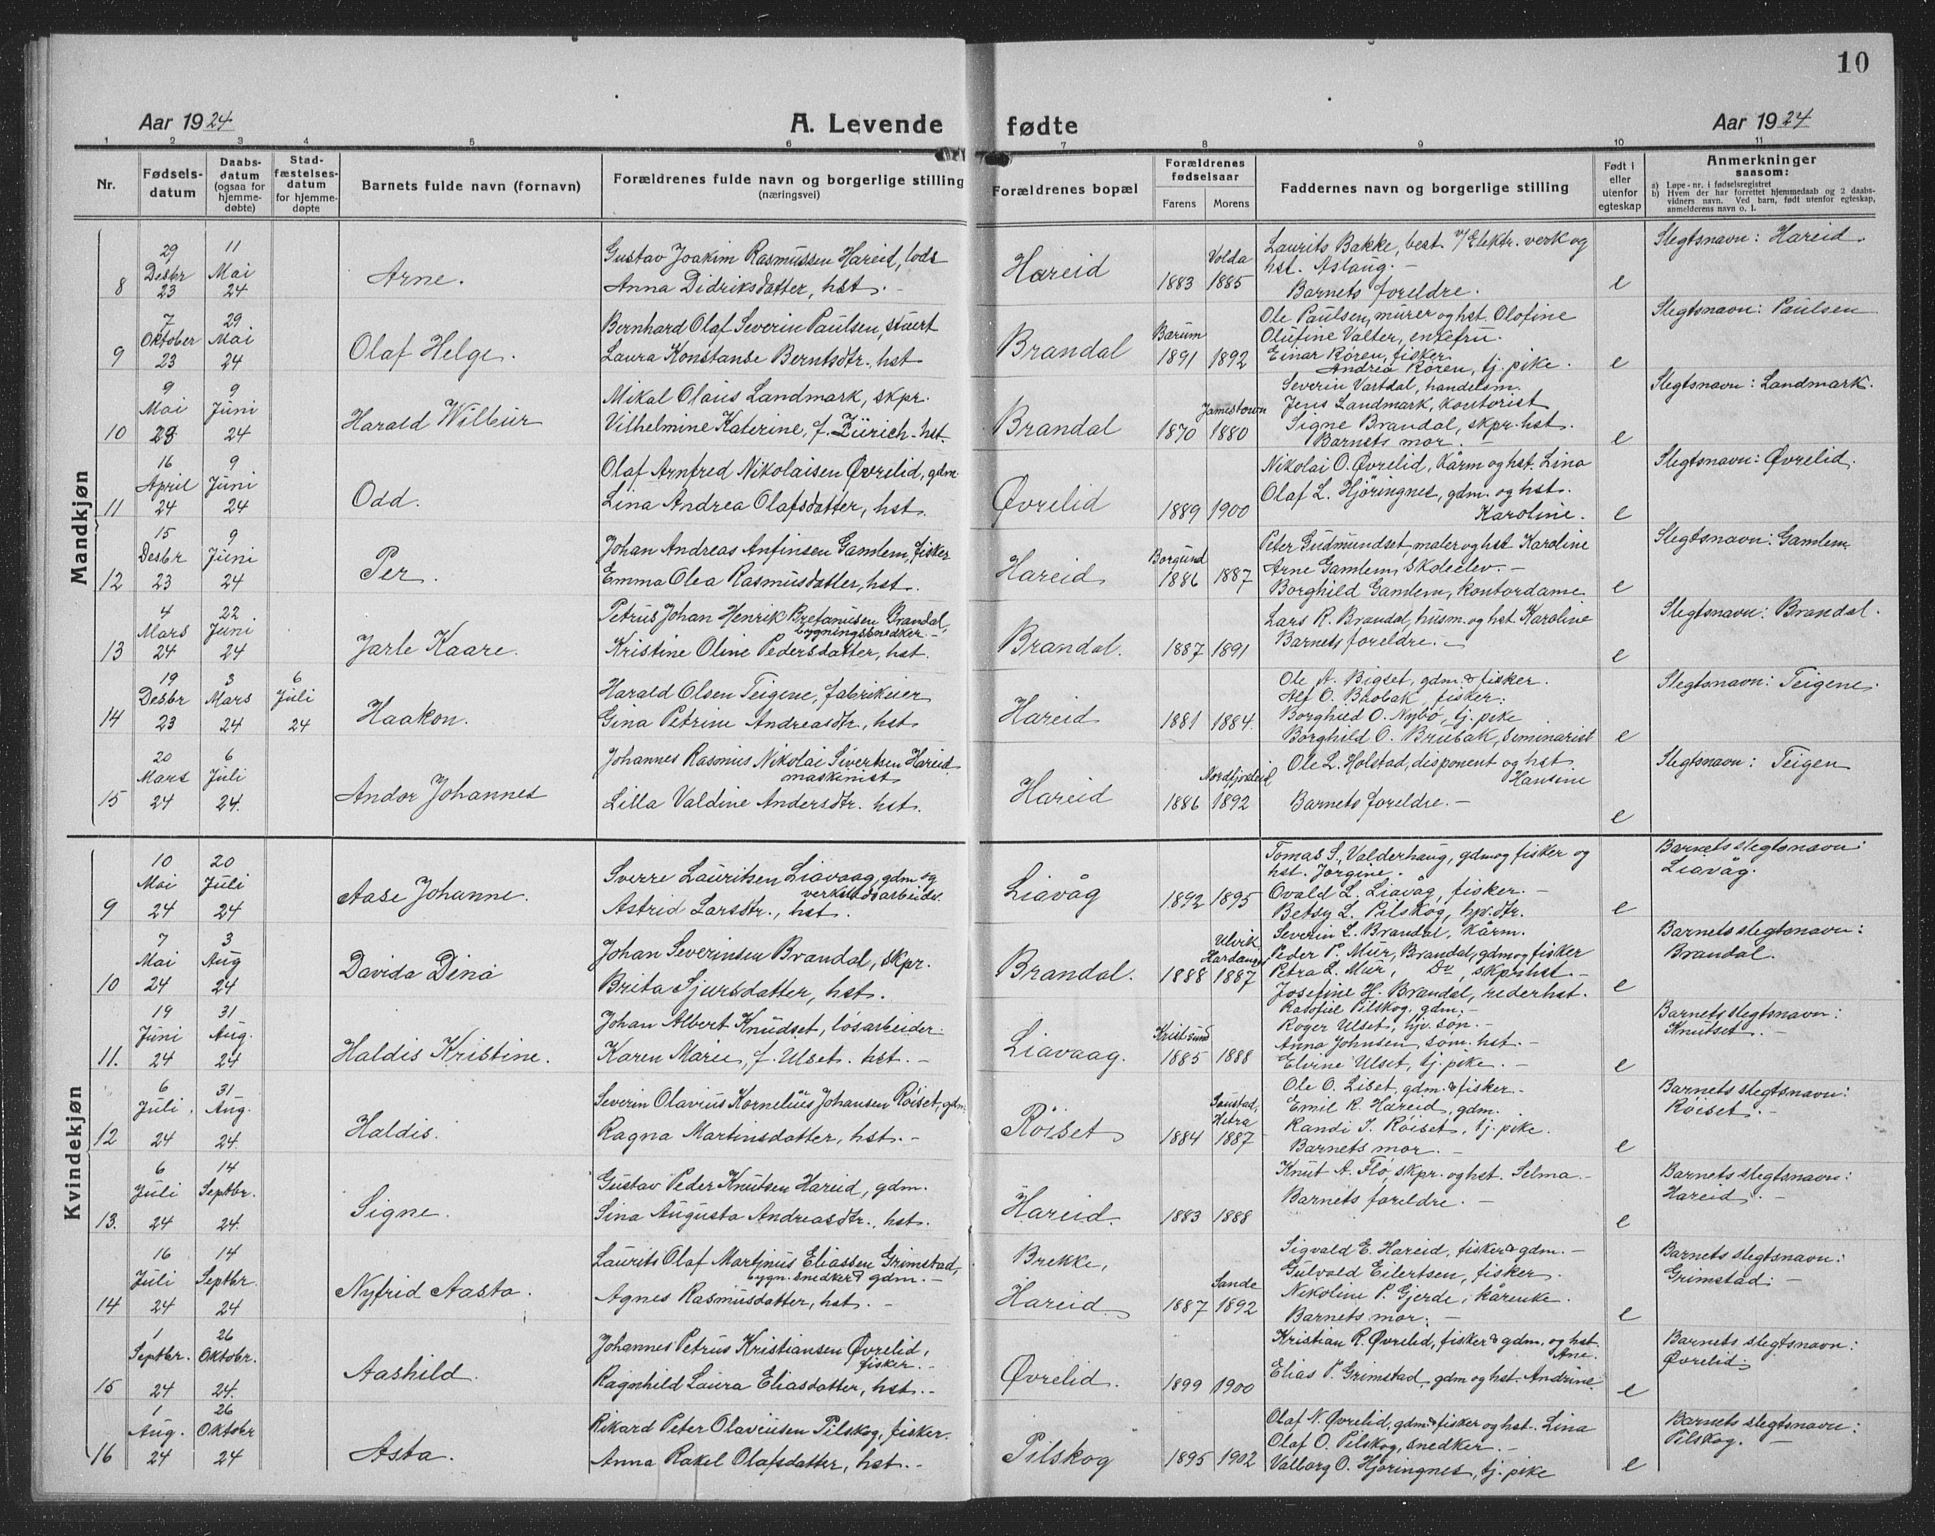 10
Aar 1924
A. Levende fødte
Aar 1924
1 2 3 4 5 6 7 8 9 10 11
Nr.
Fødsels-datum
Daabs-datum (ogsaa for hjemme-døbte)
Stad-fæstelses-datum for hjemme-døpte
Barnets fulde navn (fornavn)
Forældrenes fulde navn og borgerlige stilling (næringsvei)
Forældrenes bopæl
Forældrenes fødselsaar
Farens Morens
Faddernes navn og borgerlige stilling
Født i eller utenfor egteskap
Anmerkninger saasom:
a) Løpe-nr. i fødselsregistret
b) Hvem der har forrettet hjemmedaab og 2 daabs-vidners navn. Ved barn, født utenfor egteskap, anmelderens navn o. l.
Mandkjøn
8
29 Desbr 23
11 Mai 24
Arne.
Gustav Joakim Rasmussen Hareid, lods
Anna Didriksdatter, hst. -
Hareid
1883 Volda 1885
Laurits Bakke, best. v/Elektr. verk og
hst. Aslaug. -
Barnets foreldre.
e
Slegtsnavn: Hareid.
9
7 Oktober 23
29 Mai 24
Olaf Helge.
Bernhard Olaf Severin Paulsen, stuert
Laura Konstanse Berntsdtr., hst
Brandal
Barum 1891 1892
Ole Paulsen, murer og hst. Olofine
Olufine Valter, enkefru.
Einar Røren, fisker
Andrea Røren, tj. pike.
e
Slegtsnavn: Paulsen
10
9 Mai 23
9 Juni 24
Harald Wilbur
Mikal Olaus Landmark, skpr.
Vilhelmine Katerine, f. Zürich. hst.
Brandal
1870 Jamestown 1880
Severin Vartdal, handelsm.
Jens Landmark, kontorist
Signe Brandal, skpr. hst.
Barnets mor. -
e
Slegtsnavn: Landmark.
11
16 April 24
9 Juni 24
Odd.
Olaf Arnfred Nikolaisen Øvrelid, gdm
Lina Andrea Olafsdatter, hst.
Øvrelid
1889 1900
Nikolai O. Øvrelid, kårm og hst. Lina
Olaf L. Hjöringnes, gdm. og hst.
Karoline.
e
Slegtsnavn: Øvrelid.
12
15 Desbr 23
9 Juni 24
Per.
Johan Andreas Anfinsen Gamlem, fisker
Emma Olea Rasmusdatter, hst.
Hareid
Borgund 1886 1887
Peter Gudmundset, maler og hst Karoline
Arne Gamlem, skoleelev. -
Borghild Gamlem, kontordame
e
Slegtsnavn: Gamlem
13
4 Mars 24
22 Juni 24
Jarle Kaare.
Petrus Johan Henrik Brandal,
Kristine Oline Pedersdatter, hst.
Brandal.
1887 1891
Lars R. Brandal, husm. og hst. Karoline
Barnets foreldre. -
e
Slegtsnavn: Brandal.
14
19 Desbr 23
3 Mars 24
6 Juli 24
Haakon.
Harald Olsen Teigene, fabrikeier
Gina Petrine Andreasdtr., hst
Hareid
1881 1884.
Ole A. Bigset, gdm. & fisker.
O. fisker.
O. Nybø, tj. pike
Borghild O. Brubak, seminarist
e
Slegtsnavn: Teigene.
15
20 Mars 24
6 Juli 24.
Andor Johannes
Johannes Rasmus Nikolai Sivertsen Hareid
maskinist
Lilla Valdine Andersdtr. hst.
Hareid
1886 Nordfjordeid 1892
Ole L. Holstad, disponent og hst.
Hansine
Barnets foreldre. -
e
Slegtsnavn: Teigen
Kvindekjøn
9
10 Mai 24
20 Juli 24
Aase Johanne.
Sverre Lauritsen Liavaag, gdm og
verkstedsarbeider.
Astrid Larsdtr., hst.
Liavåg
1892 1895
Tomas S. Valderhaug, gdm og fisker og
hst. Jørgine.
Ovald L. Liavåg, fisker. -
Betsy L. Pilskog, hjv. dtr.
e
Barnets slegtsnavn:
Liavåg.
10
7 Mai 24
3 Aug 24
Davida Dina
Johan Severinsen Brandal, skpr.
Brita Sjursdatter, hst.
Brandal.
1888 Ulvik, Hardanger 1887
Severin L. Brandal, kårm.
Peder P. Mür, Brandal, gdm og fisker
Petra L. Mür, Do, skprs hst. -
Josefine H. Brandal, rederhst.
e
Barnets slegtsnavn:
Brandal.
11.
19 Juni 24
31 Aug. 24
Haldis Kristine.
Johan Albert Knudset, lösarbeider.
Karen Marie, f. Ulset. hst. -
Liavaag.
Kristsund 1885 1888
Rasofiel Pilskog, gdm. -
Roger Ulset, hjv. søn. -
Anna Johnsen, søm. hst. -
Elvine Ulset, tj. pike. -
e
Barnets slegtsnavn:
Knutset. -
12
6 Juli. 24
31 Aug. 24.
Haldis.
Severin Olavius Kornelius Johansen Röiset, gdm.
Ragna Martinsdatter, hst. -
Röiset
1884 Hitra 1887
Ole O. Liset, gdm. & fisker. -
Emil R. Hareid, gdm.
Randi S. Röiset, tj. pike.
Barnets mor. -
e
Barnets slegtsnavn:
Röiset. -
13.
6 Juli 24
14 Septbr. 24.
Signe.
Gustav Peder Knutsen Hareid, gdm.
Sina Augusta Andreasdtr., hst.
Hareid.
1883 1888
Knut A. Flø, skpr. og hst. Selma -
Barnets foreldre. -
e
Barnets slegtsnavn:
Hareid. -
14
16 Juli 24
14 Septbr. 24
Nyfrid Aasta.
Laurits Olaf Martinus Eliassen Grimstad,
bygn. snedker & gdm. -
Agnes Rasmusdatter, hst. -
Brekke,
Hareid
1887 Sande 1892
Sigvald E. Hareid, fisker & gdm. -
Gulvald Eilertsen, fisker.
Nikoline P. Gjerde, kårenke.
Barnets mor. -
e
Barnets slegtsnavn:
Grimstad. -
15
1 Septbr. 24
26 Oktober. 24.
Aashild.
Johannes Petrus Kristiansen Øvrelid,
fisker. -
Ragnhild Laura Eliasdatter, hst. -
Øvrelid.
1899 1900
Kristian R. Øvrelid, fisker & gdm. og hst.
Ane.
Elias P. Grimstad, gdm og hst. Andrine.
e
Barnets slegtsnavn:
Øvrelid
16
1 Aug. 24
26 Oktober 24
Asta.
Rikard Peter Olaviusen Pilskog, fisker.
Anna Rakel Olafsdatter, hst. -
Pilskog
1895 1902
Olaf N. Øvrelid, gdm & fisker og hst. Lina
Olaf O. Pilskog, snedker. -
Valborg O. Hjöringnes, tj. pike
e
Barnets slegtsnavn:
Pilskog. -